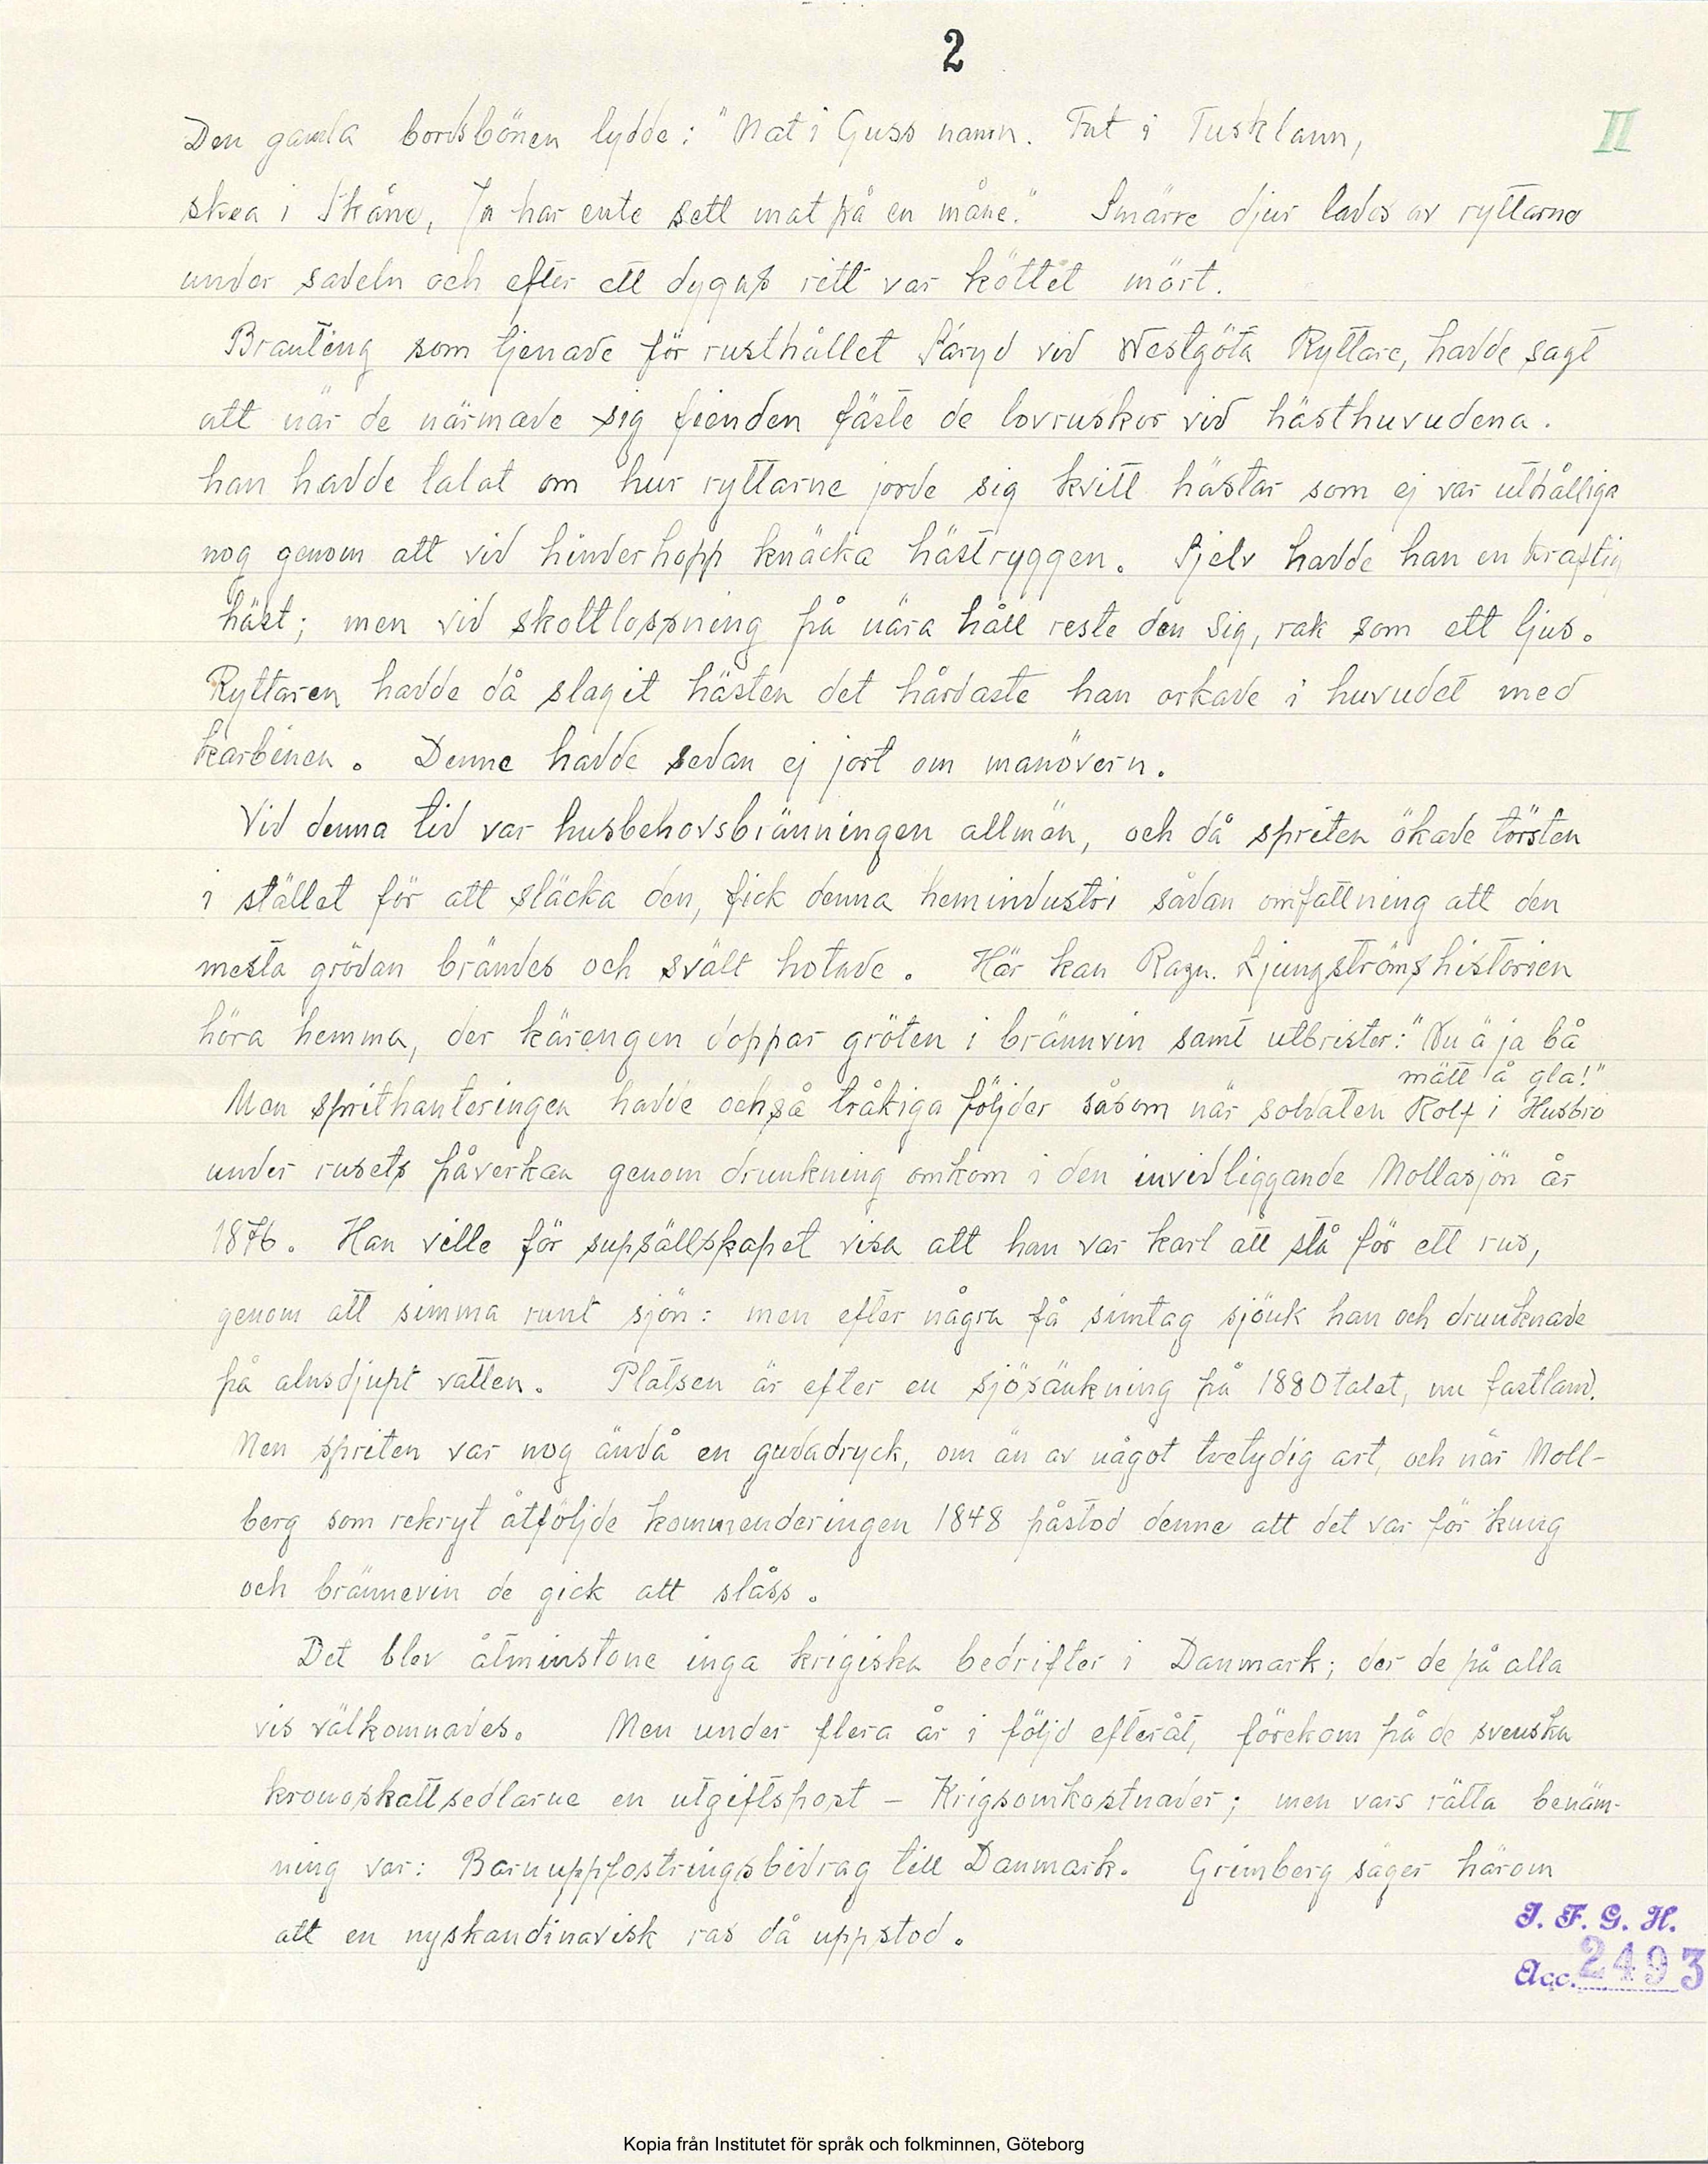 2
II
Den gamla bordsbönen lydde: "Mat i Guss namn. Fat i Tusklann,
skea i Skåne, Ja har ente sett mat på en måne." Smärre djur lades av ryttarne
under sadeln och efter ett dygns ritt var köttet mört.
Branting som tjenade för rusthållet Säryd vid Westgöta Ryttare, hadde sagt
att när de närmade sig fienden fäste de lovruskor vid hästhuvudena.
han hadde talat om hur ryttarne jorde sig kvitt hästar som ej var uthålliga
nog genom att vid hinderhopp knäcka hästryggen. Sjelv hadde han en kraftig
häst; men vid skottlossning på nära håll reste den sig, rak som ett ljus.
Ryttaren hadde då slagit hästen det hårdaste han orkade i huvudet med
karbinen. Denne hadde sedan ej jort om manövern.
Vid denna tid var husbehovsbränningen allmän, och då spriten ökade törsten
i stället för att släcka den, fick denna hemindustri sådan omfattning att den
mesta grödan brändes och svält hotade. Här kan Ragn. Ljungströmshistorien
höra hemma, der käringen doppar gröten i brännvin samt utbrister: "Nu ä ja bå
mätt å gla!"
Men sprithanteringen hadde också tråkiga följder såsom när soldaten Rolf i Husbro
under rusets påverkan genom drunkning omkom i den invidliggande Mollasjön år
1876. Han ville för supsällskapet visa att han var karl att stå för ett rus,
genom att simma runt sjön: men efter några få simtag sjönk han och drunknade
på alnsdjupt vatten. Platsen är efter en sjösänkning på 1880 talet, nu fastland.
Men spriten var nog ändå en gudadryck, om än av något tvetydig art, och när Moll-
berg som rekryt åtföljde kommenderingen 1848 påstod denne att det var för kung
och brännevin de gick att slåss.
Det blev åtminstone inga krigiska bedrifter i Danmark; der de på alla
vis välkomnades. Men under flera år i följd efteråt, förekom på de svenska
kronoskattsedlarne en utgiftspost - Krigsomkostnader; men vars rätta benäm-
ning var: Barnuppfostringsbidrag till Danmark. Grimberg säger härom
att en nyskandinavisk ras då uppstod.
I. F. G. H.
Acc. 2493
Kopia från Institutet för språk och folkminnen, Göteborg